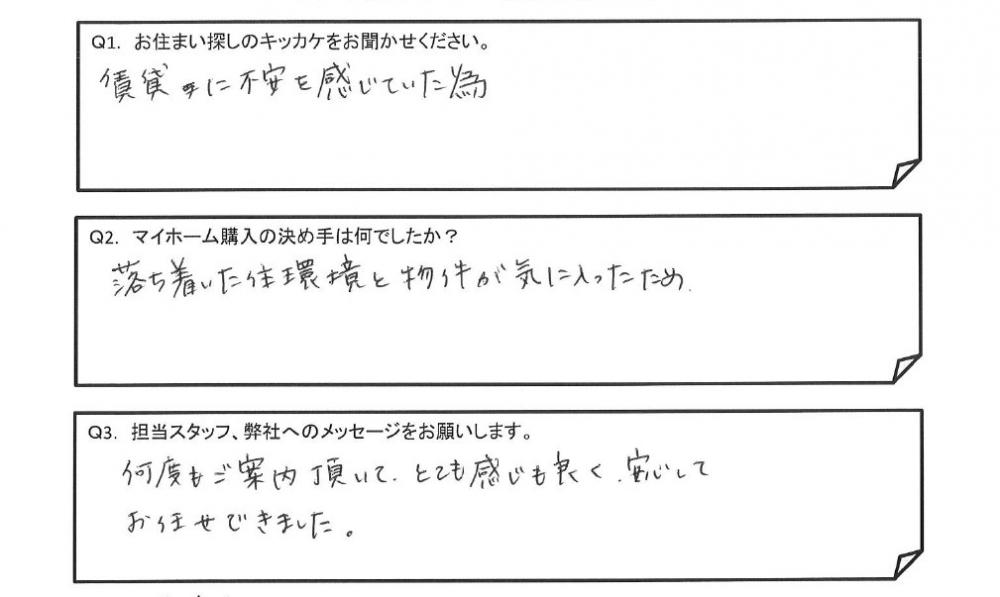 Q1. お住まい探しのキッカケをお聞かせください。
賃貸 に不安を感じていた為
Q2. マイホーム購入の決め手は何でしたか？
落ち着いた住環境と物件が気に入ったため.
Q3. 担当スタッフ、弊社へのメッセージをお願いします。
何度もご案内頂いて、とても感じも良く、安心して
お任せできました。